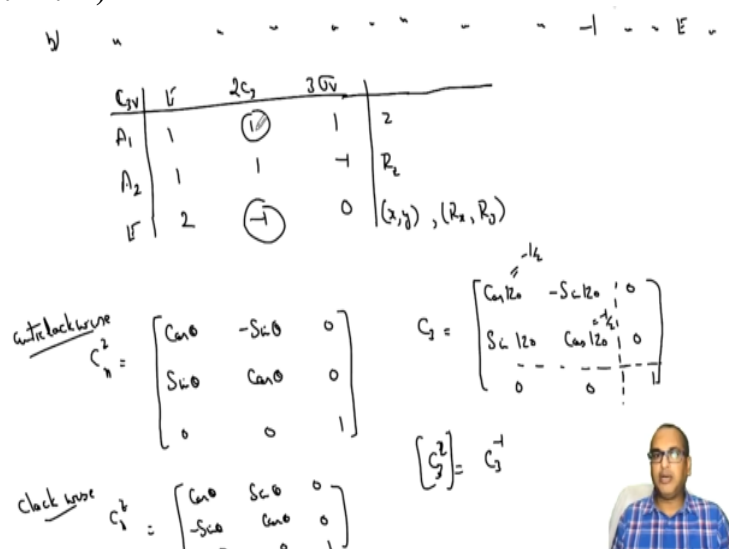 b) " " " " " " " " -1 " " E "
C3v | E 2C3 3σv |
A1 | 1 1 1 | z
A2 | 1 1 -1 | Rz
E | 2 -1 0 | (x,y), (Rx, Ry)
anticlockwise
Cn^z = [ Cosθ -Sinθ 0
Sinθ Cosθ 0
0 0 1 ]
C3 = [ Cos120 = -1/2 -Sin120 0
Sin120 Cos120 = -1/2 0
0 0 1 ]
[C3^2] = C3^-1
Clockwise
[ Cosθ Sinθ 0
-Sinθ Cosθ 0